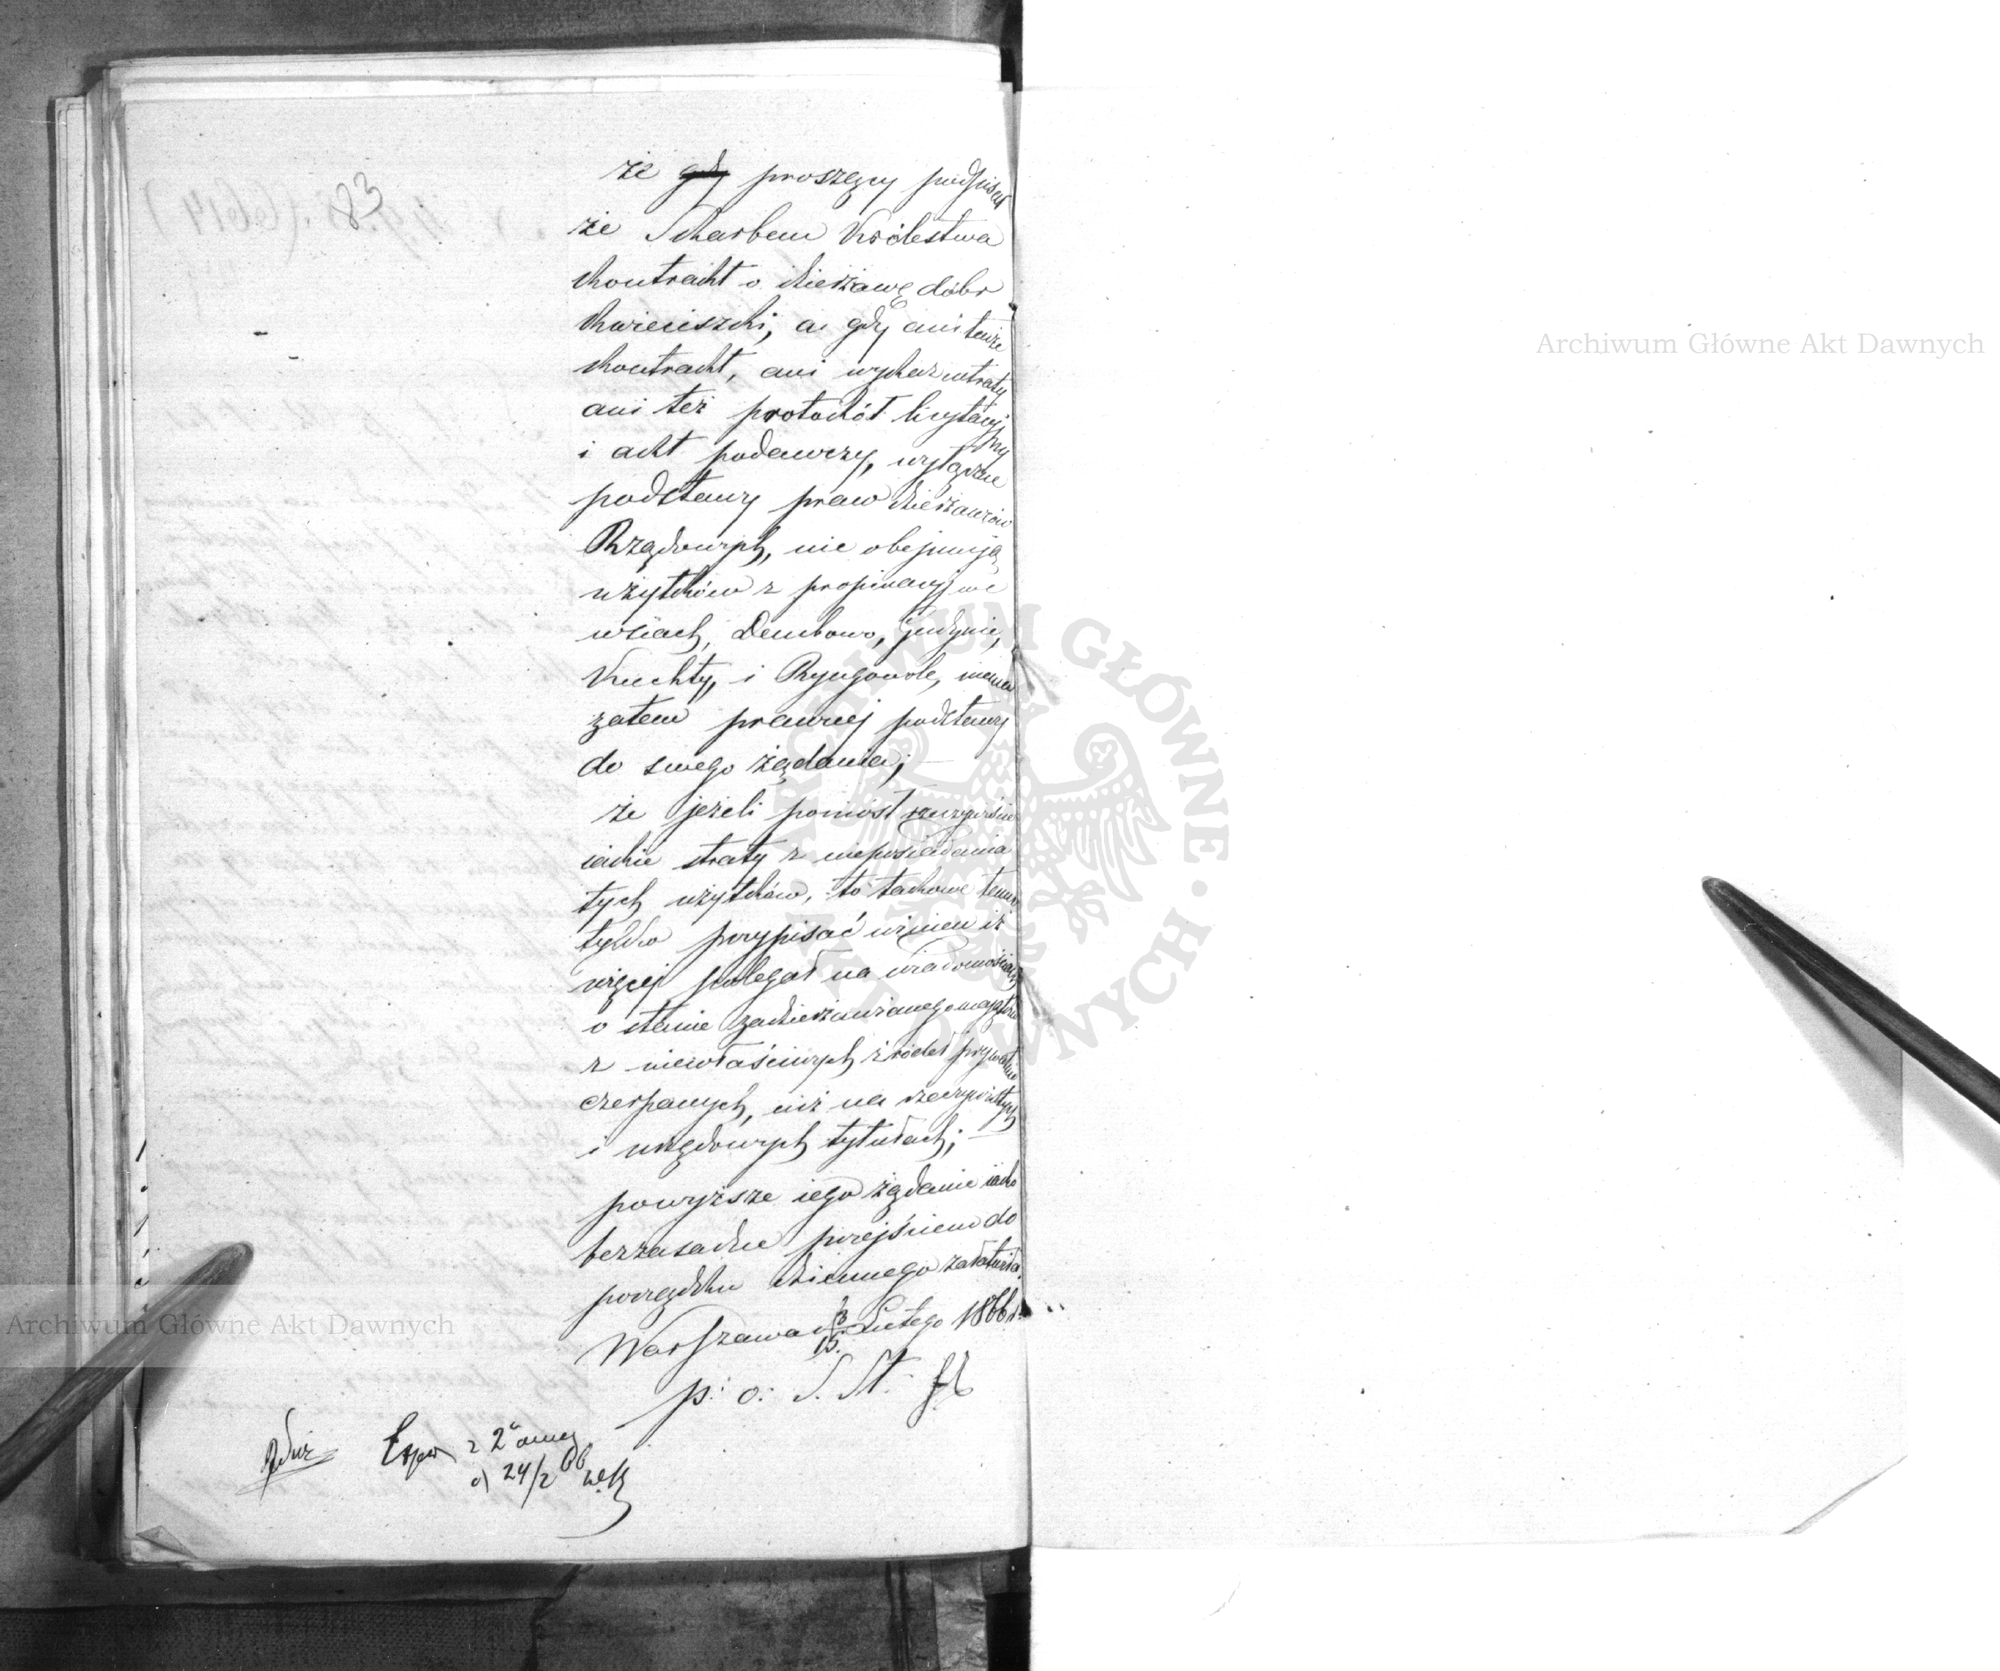 83
że gdy proszący podpisał
ze Skarbem Królestwa
kontrakt o dzierżawę dóbr
Kwieciszki, a gdy ani tenże
kontrakt, ani wykaz intraty
ani też protokół licytacyjny
i akt podawczy, wyłączne
podstawy praw dzierżawców
Rządowych, nie obejmują
użytków z propinacyj we
wsiach, Dembowo, Gudynie,
Kuchty, i Ryngowole, niema
zatem prawnej podstawy
do swego żądania;
że jeżeli poniósł rzeczywiście
iakie straty z nieposiadania
tych użytków, to takowe temu
tylko przypisać winien iż
więcej polegał na wiadomościach
o stanie zadzierżawianego majątku
z niewłaściwych źródeł prywatnie
czerpanych, niż na rzeczywistych
i urzędowych tytułach;
powyższe iego żądanie iako
bezzasadne przejściem do
porządku dziennego załatwiła.
Warszawa d 3/15 Lutego 1866 r.
p: o: S. St.
Exped z 2a
d 24/2 66
Archiwum Główne Akt Dawnych
Archiwum Główne Akt Dawnych
ARCHIWUM GŁÓWNE AKT DAWNYCH